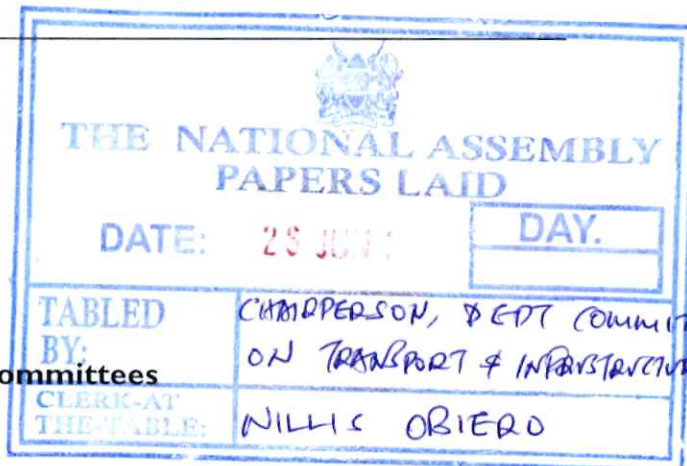 THE NATIONAL ASSEMBLY
PAPERS LAID
DATE: DAY.
TABLED BY: CHAIRPERSON, DEPT COMMIT
ON TRANSPORT &
ommittees
CLERK-AT THE-TABLE: WILLIS OBIERO